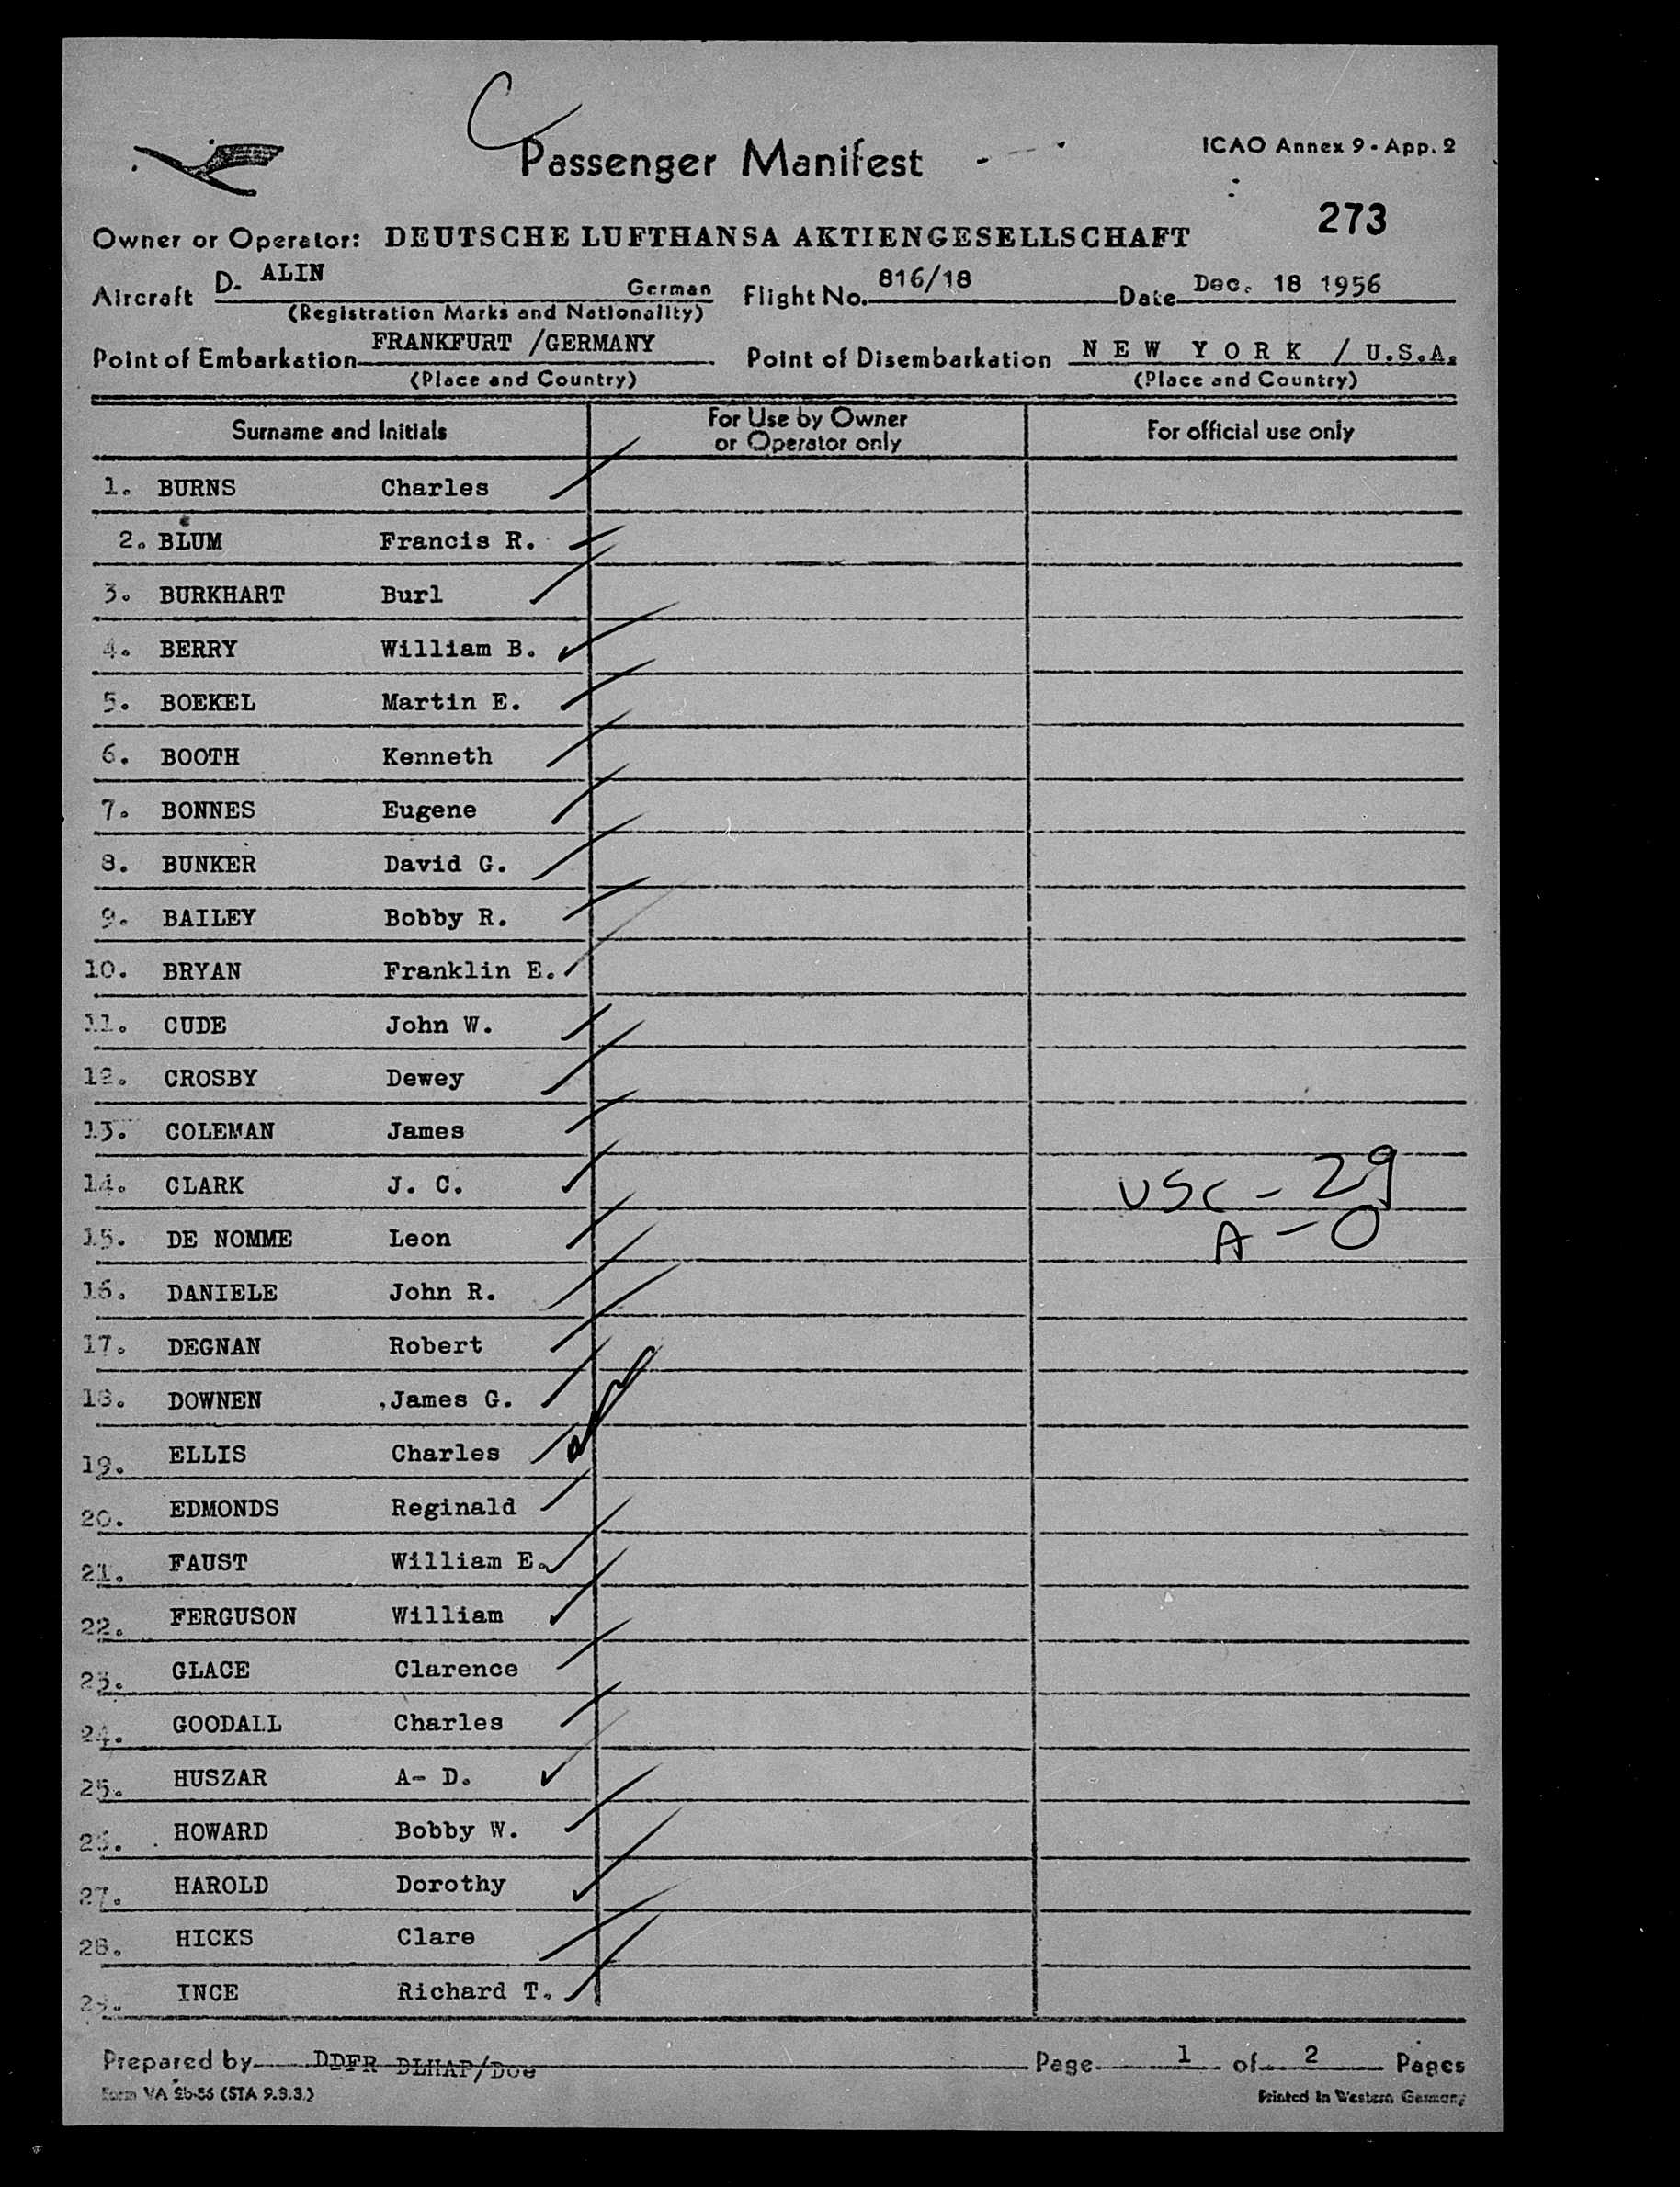 C
Passenger Manifest
ICAO Annex 9 - App. 2
273
Owner or Operator: DEUTSCHE LUFTHANSA AKTIENGESELLSCHAFT
Aircraft D- ALIN German Flight No. 816/18 Date Dec. 18 1956
(Registration Marks and Nationality)
Point of Embarkation FRANKFURT /GERMANY Point of Disembarkation NEW YORK / U.S.A.
(Place and Country) (Place and Country)
Surname and Initials For Use by Owner or Operator only For official use only
1. BURNS Charles
2. BLUM Francis R.
3. BURKHART Burl
4. BERRY William B.
5. BOEKEL Martin E.
6. BOOTH Kenneth
7. BONNES Eugene
8. BUNKER David G.
9. BAILEY Bobby R.
10. BRYAN Franklin E.
11. CUDE John W.
12. CROSBY Dewey
13. COLEMAN James
14. CLARK J. C. USC - 29
15. DE NOMME Leon A - 0
16. DANIELE John R.
17. DEGNAN Robert
18. DOWNEN James G.
19. ELLIS Charles
20. EDMONDS Reginald
21. FAUST William E.
22. FERGUSON William
23. GLACE Clarence
24. GOODALL Charles
25. HUSZAR A- D.
26. HOWARD Bobby W.
27. HAROLD Dorothy
28. HICKS Clare
29. INCE Richard T.
Prepared by DDFR DLHAP/Doe Page 1 of 2 Pages
Form VA 2b-56 (STA 9.3.3.) Printed in Western Germany